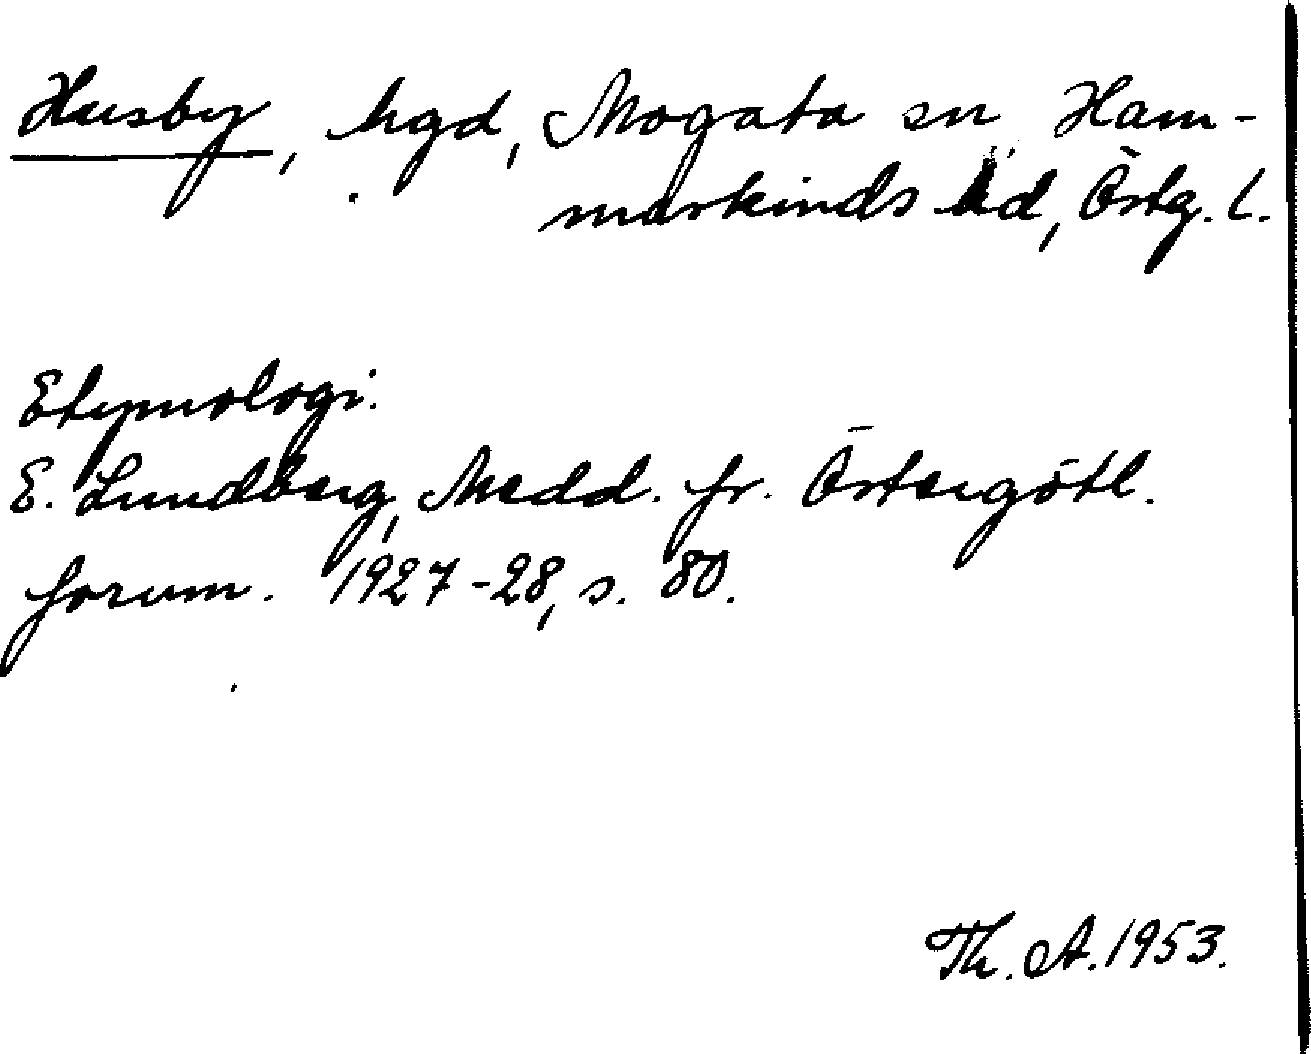 Husby, hgd, Mogata sn, Ham-
markinds hd, Östg. l.
Etymologi.
E. Lundberg, Medd. fr. Östergötl.
fornm. 1927-28, s. 80.
Th. A. 1953.